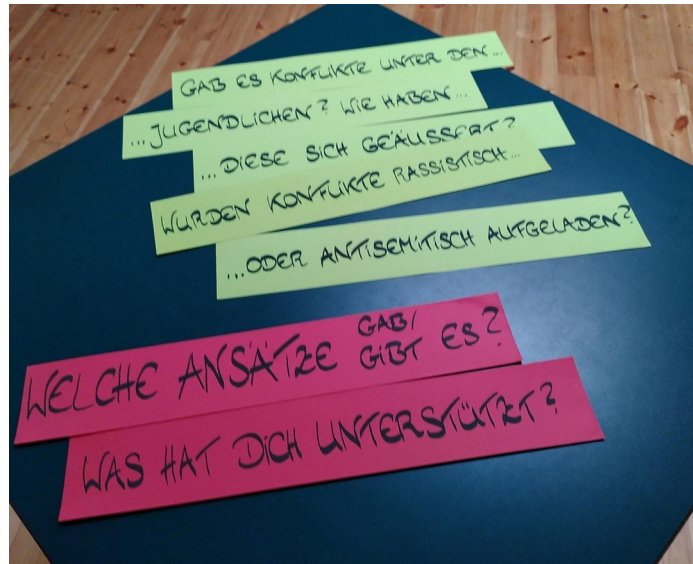 GAB ES KONFLIKTE UNTER DEN...
...JUGENDLICHEN? WIE HABEN...
...DIESE SICH GEÄUSSERT?
WURDEN KONFLIKTE RASSISTISCH...
...ODER ANTISEMITISCH AUFGELADEN?
WELCHE ANSÄTZE GAB/ GIBT ES?
WAS HAT DICH UNTERSTÜTZT?